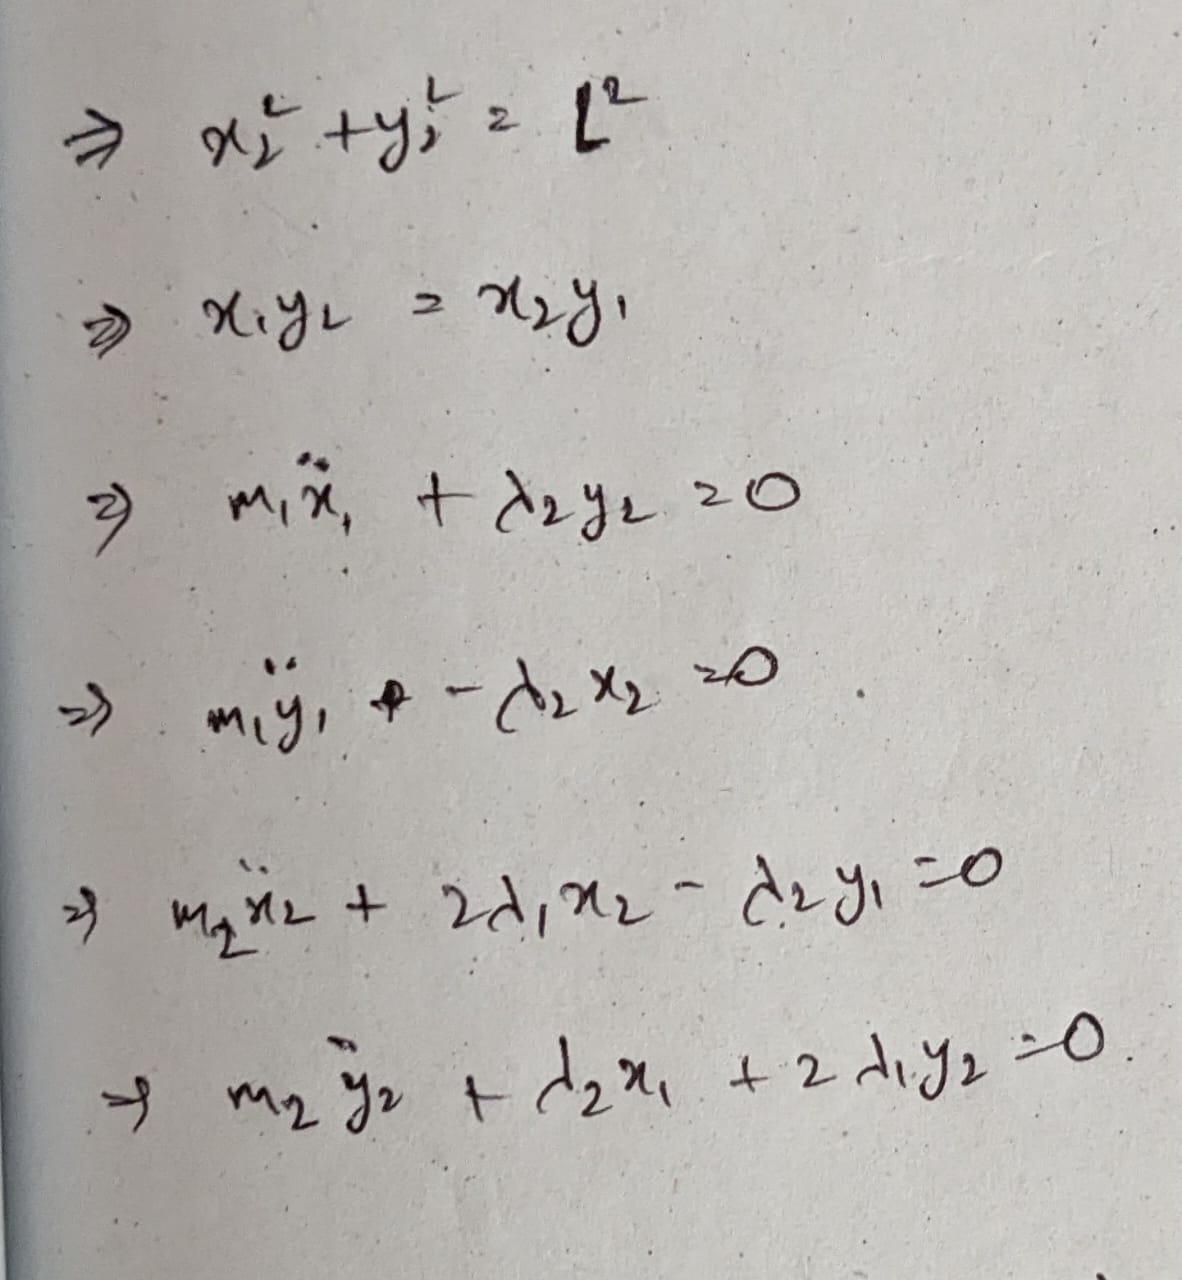 ⇒ x₂² + y₂² = L²
⇒ x₁y₂ = x₂y₁
⇒ m₁ẍ₁ + λ₂y₂ = 0
⇒ m₁ÿ₁ - λ₂x₂ = 0
⇒ m₂ẍ₂ + 2λ₁x₂ - λ₂y₁ = 0
⇒ m₂ÿ₂ + λ₂x₁ + 2λ₁y₂ = 0.